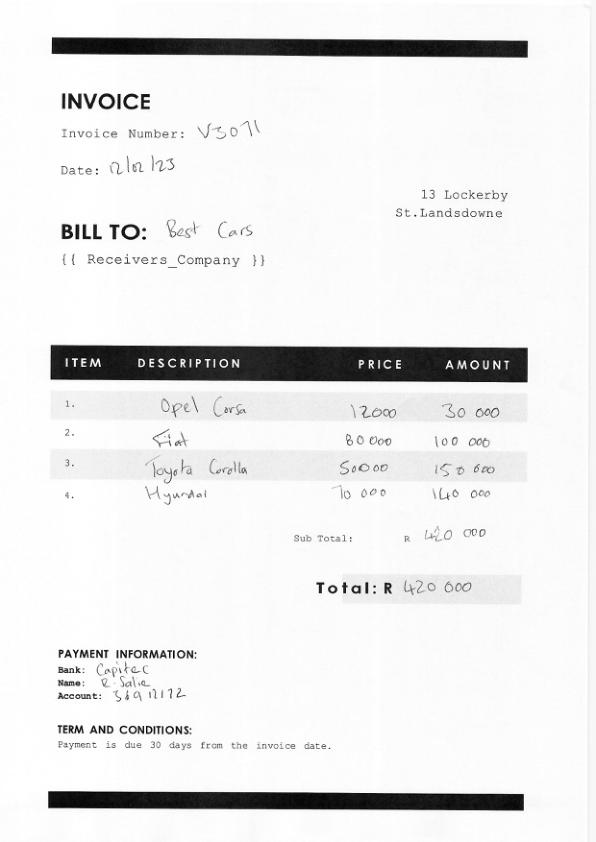 INVOICE
Invoice Number: V3071
Date: 12/02/23
13 Lockerby
St.Landsdowne
BILL TO: Best Cars
{{ Receivers_Company }}
ITEM DESCRIPTION PRICE AMOUNT
1. Opel Corsa 12000 30 000
2. Fiat 80 000 100 000
3. Toyota Corolla 50000 150 000
4. Hyundai 70 000 140 000
Sub Total: R 420 000
Total: R 420 000
PAYMENT INFORMATION:
Bank: Capitec
Name: R. Salie
Account:
TERM AND CONDITIONS:
Payment is due 30 days from the invoice date.